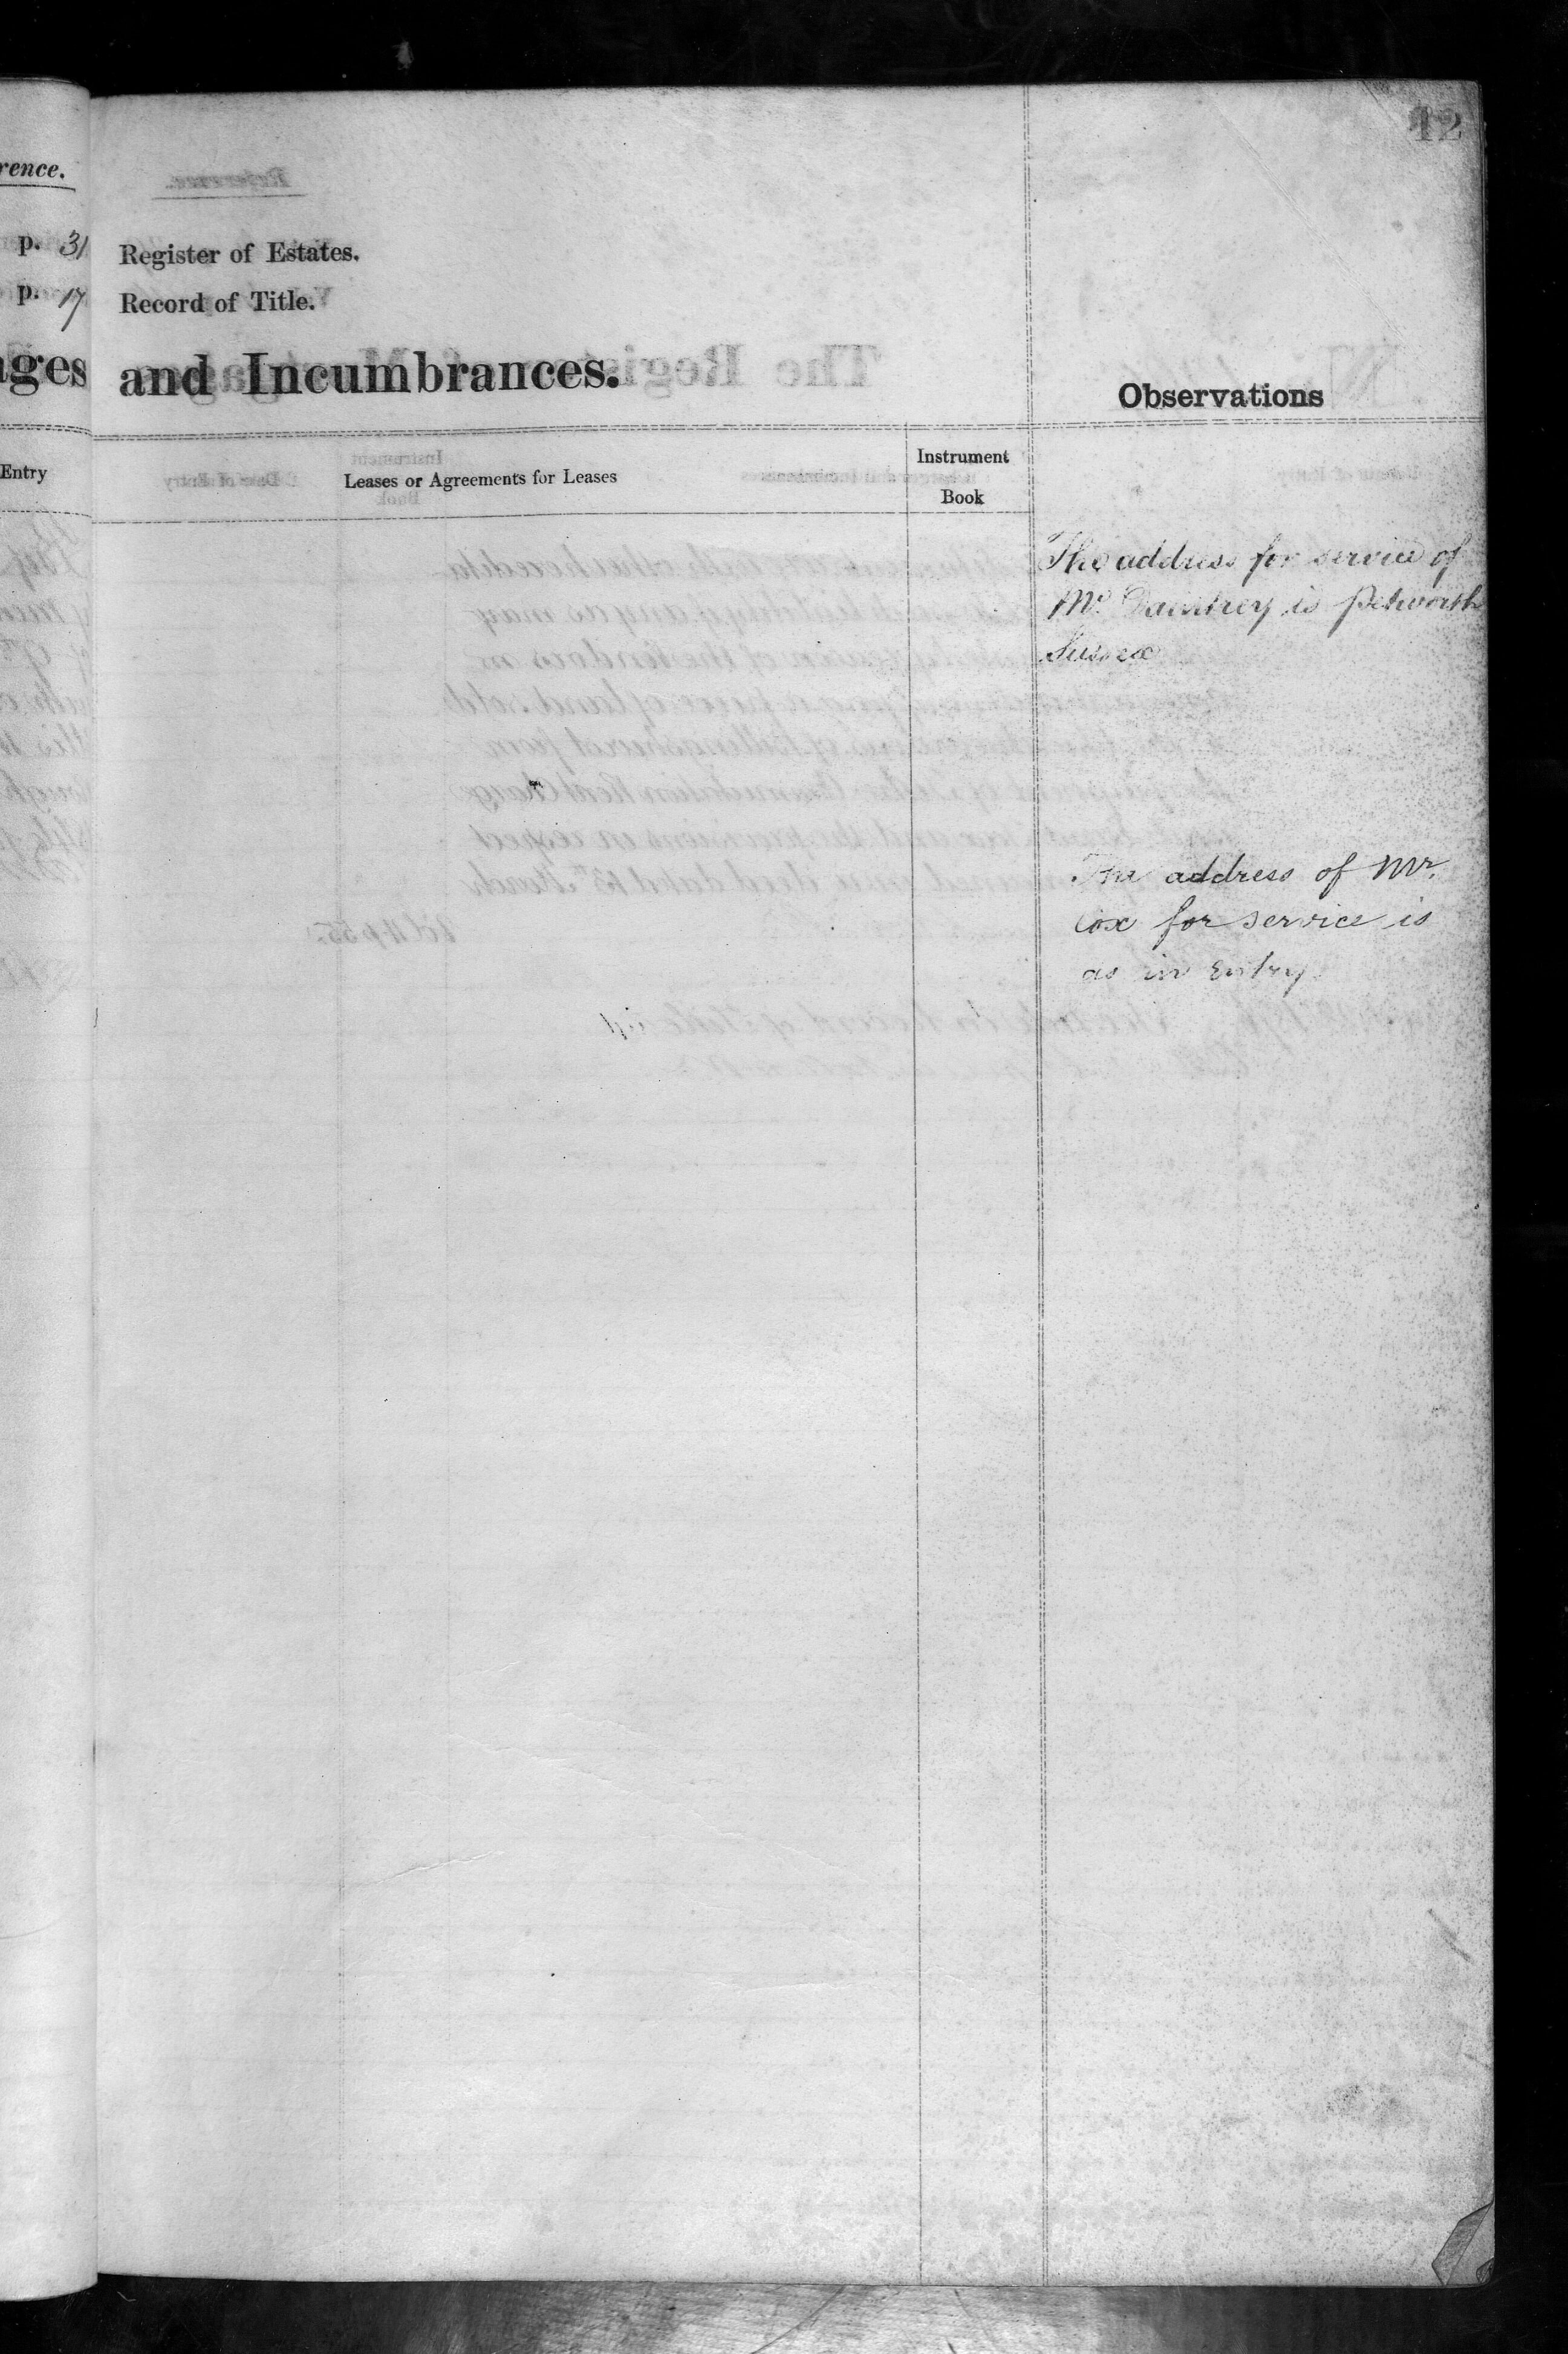 12
rence.
p. 31 Register of Estates.
p. 17 Record of Title.
ages and Incumbrances.
Observations
Entry
Leases or Agreements for Leases
Instrument
Book
The address for service of
Mr. Daintrey is Petworth
Sussex
The address of Mr.
Cox for service is
as in Entry